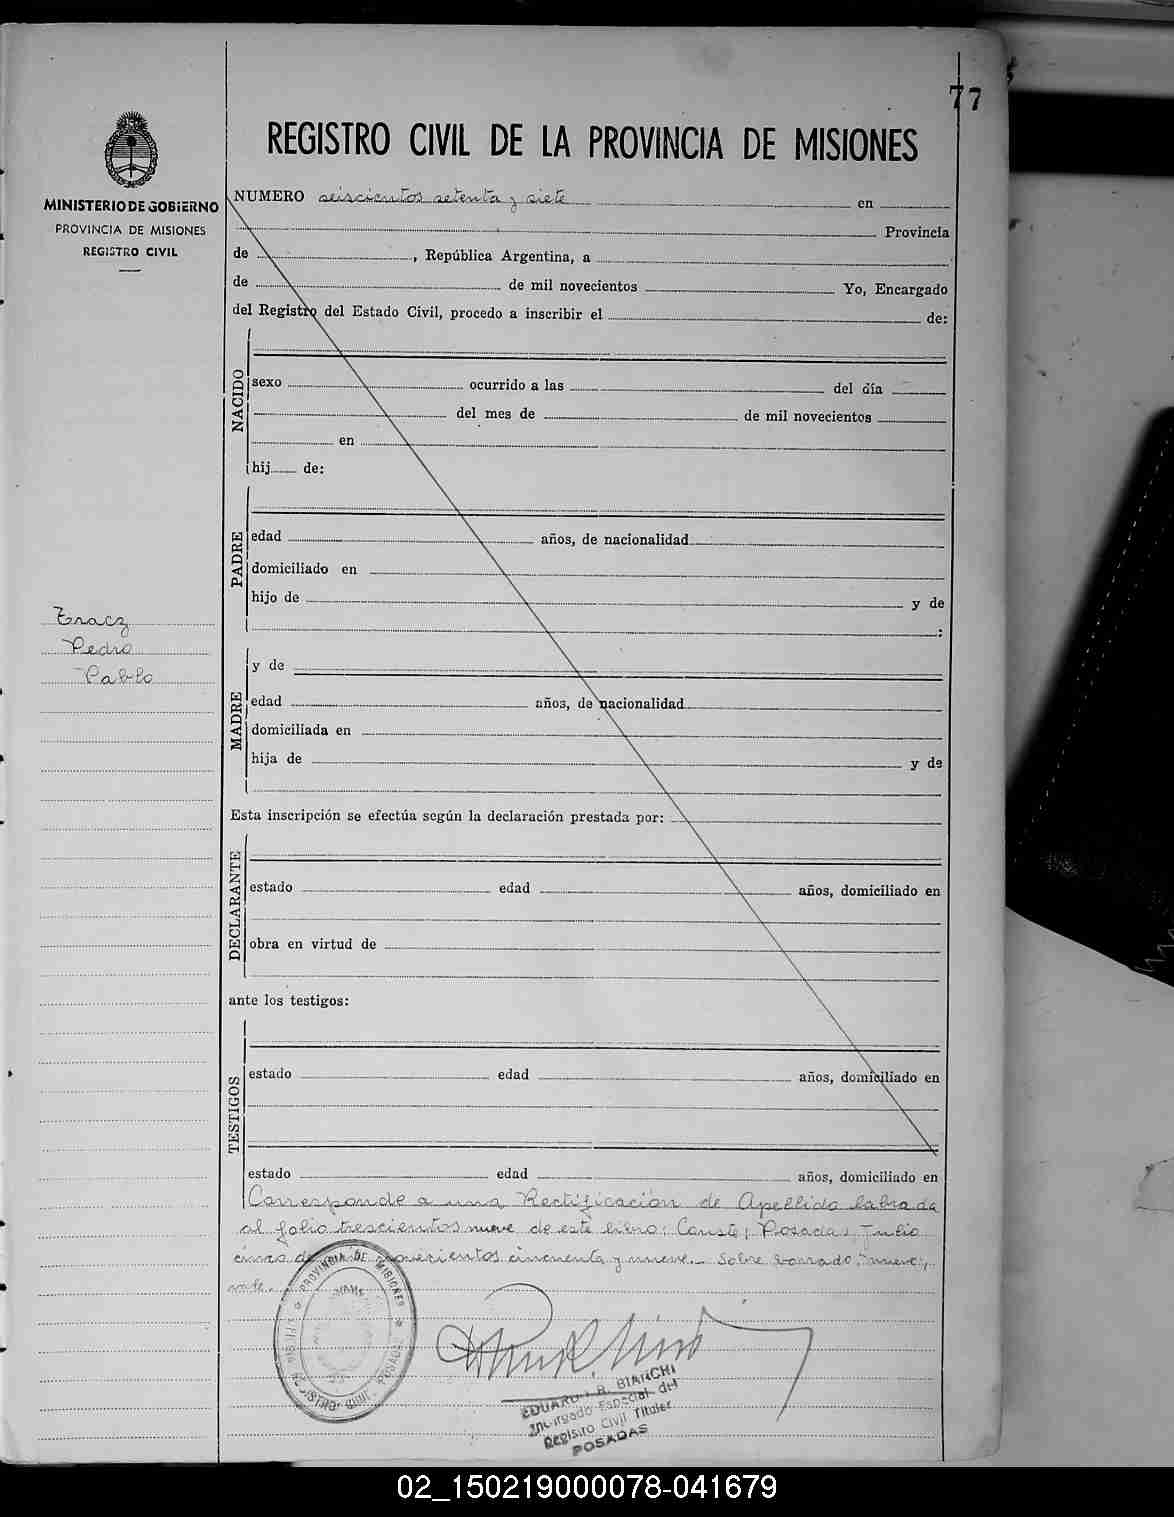 77
REGISTRO CIVIL DE LA PROVINCIA DE MISIONES
MINISTERIO DE GOBIERNO
PROVINCIA DE MISIONES
REGISTRO CIVIL
NUMERO seiscientos setenta y siete en
Provincia
de , República Argentina, a
de de mil novecientos Yo, Encargado
del Registro del Estado Civil, procedo a inscribir el de:
NACIDO
sexo ocurrido a las del día
del mes de de mil novecientos
en
hij de:
PADRE
edad años, de nacionalidad
domiciliado en
hijo de y de
:
Tracz
Pedro
Pablo
MADRE
y de
edad años, de nacionalidad
domiciliada en
hija de y de
Esta inscripción se efectúa según la declaración prestada por:
DECLARANTE
estado edad años, domiciliado en
obra en virtud de
ante los testigos:
TESTIGOS
estado edad años, domiciliado en
estado edad años, domiciliado en
Corresponde a una Rectificación de Apellido labrada
al folio trescientos nueve de este libro; Conste; Posadas, Julio
cinco de novecientos cincuenta y nueve.- Sobre borrado: nueve;
vale.
PROVINCIA DE MISIONES
REGISTRO CIVIL POSADAS
EDUARDO R. BIANCHI
Encargado Especial del
Registro Civil Titular
POSADAS
02_150219000078-041679